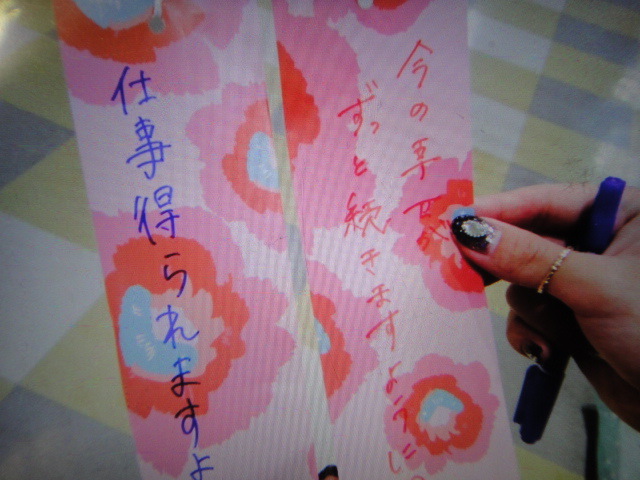 今の幸せが
ずっと続きますように
仕事得られますよ